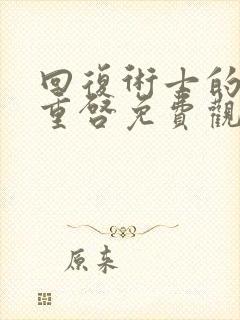 回復術士的
重啓免費觀
原来